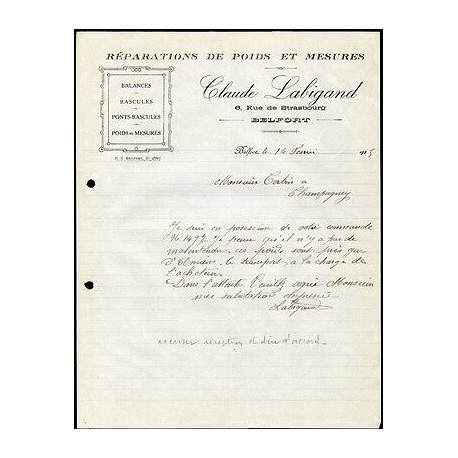 RÉPARATIONS DE POIDS ET MESURES
BALANCES
BASCULES
PONTS-BASCULES
POIDS et MESURES
Claude Labigand
6, Rue de Strasbourg
BELFORT
R. C. BELFORT, N°
Belfort le 14 Février
Monsieur Corbin a
Champagney
Je suis en possession de votre commande
N° 1497. Je pense qu'il n'y a pas de
malentendu, ces poids sont pris gare
d'Amiens, le transport a la charge de
l'acheteur.
Dans l'attente Veuillez agréer Monsieur
nos salutations empressées
Labigand
réception et dire d'accord